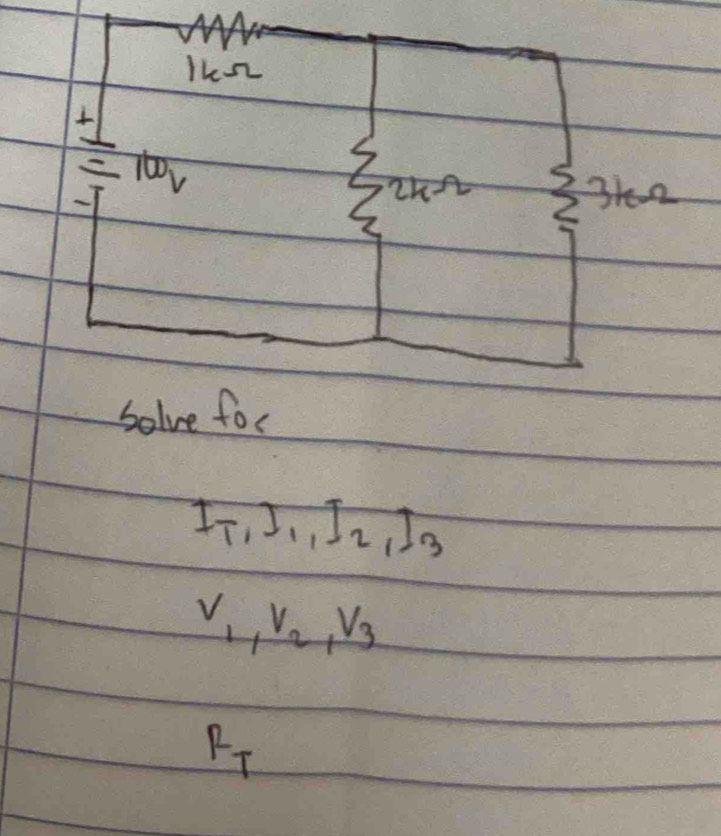 1kΩ
+
100V
-
2kΩ
3kΩ
Solve for
I_T, I_1, I_2, I_3
V_1, V_2, V_3
R_T